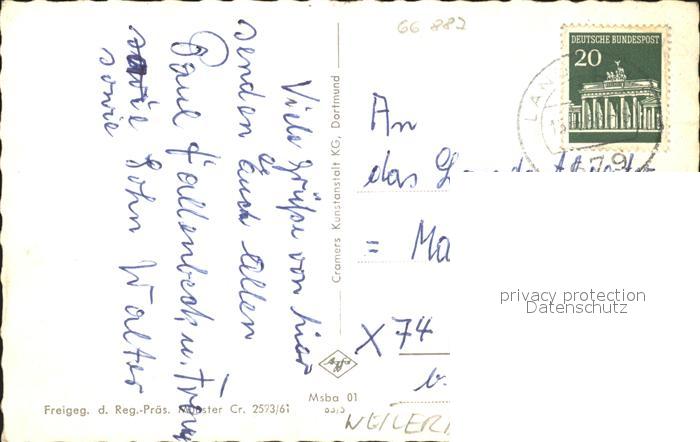 66 882
DEUTSCHE BUNDESPOST
20
LAN
579
Viele Grüße von hier
senden Euch allen
Paul Fallenbeck u. Frau
sowie Sohn Walter
sowie
Cramers Kunstanstalt KG, Dortmund
An
das
= Ma
X 74
b.
privacy protection
Datenschutz
Msba 01
Freigeg. d. Reg.-Präs. Münster Cr. 2573/61
WEILER